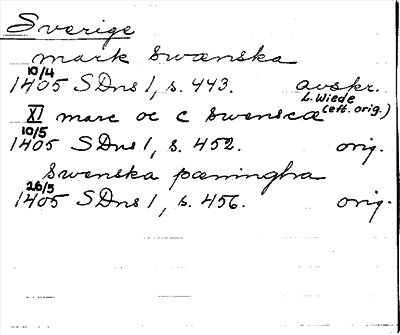 Sverige
mark swænska
10/4
1405 SDns 1, s. 443. avskr.
L. Wiede
(eft. orig.)
XI marc oc c swensca
10/5
1405 SDns 1, s. 452. orig.
Swenska pæningha
26/5
1405 SDns 1, s. 456. orig.